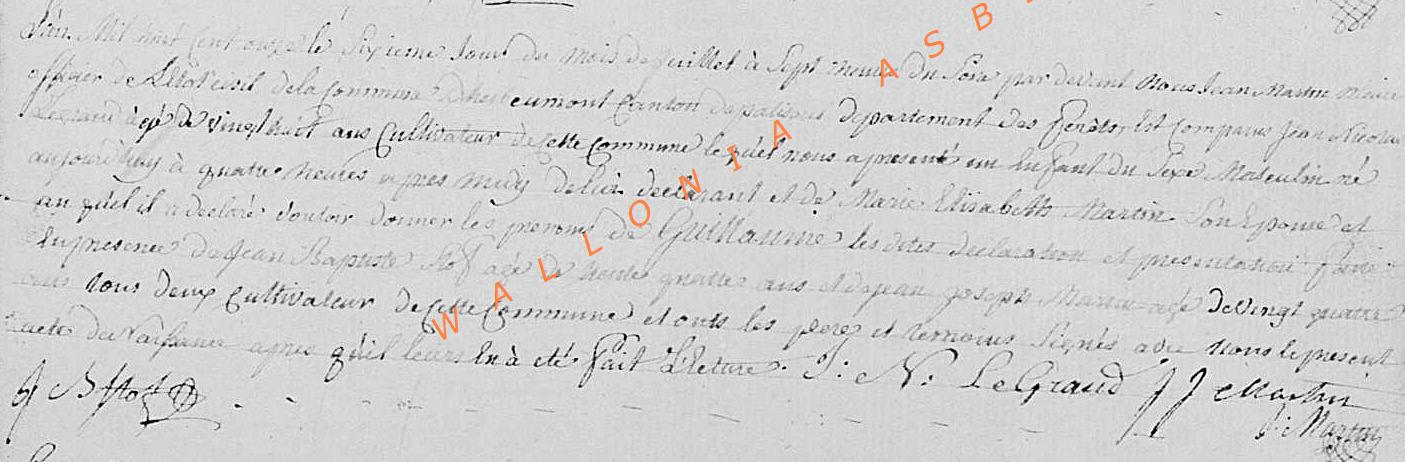 L'an Mil huit Cent onze le Sixieme Jour du mois de juillet à Sept heures du Soir par devant nous Jean Martin maire
officier de L'Etat civil de la Commune d'herbeumont Canton de paliseul departement des forêts, Est Comparus Jean Nicolas
Legrand agé de vingt huit ans Cultivateur de cette Commune lequel nous a presenté un Enfant du Sexe Masculin né
aujourd'huy à quatre heures apres midy de lui declarant et de Marie Elisabeth Martin Son Epouse et
au quel il a declaré vouloir donner les prenoms de Guillaume les dites declaration et presentation faite
En presence de Jean Baptiste agé de trente quattre ans et de jean joseph Martin agé de vingt quattre
ans tous deux Cultivateur de cette Commune et onts les pere et temoins Signés avec nous le present
acte de Naissance apres qu'il leurs En à eté fait L'Ecture. J: N: LeGrand JJ Martin
J B
J: Martin
WALLONIA ASB